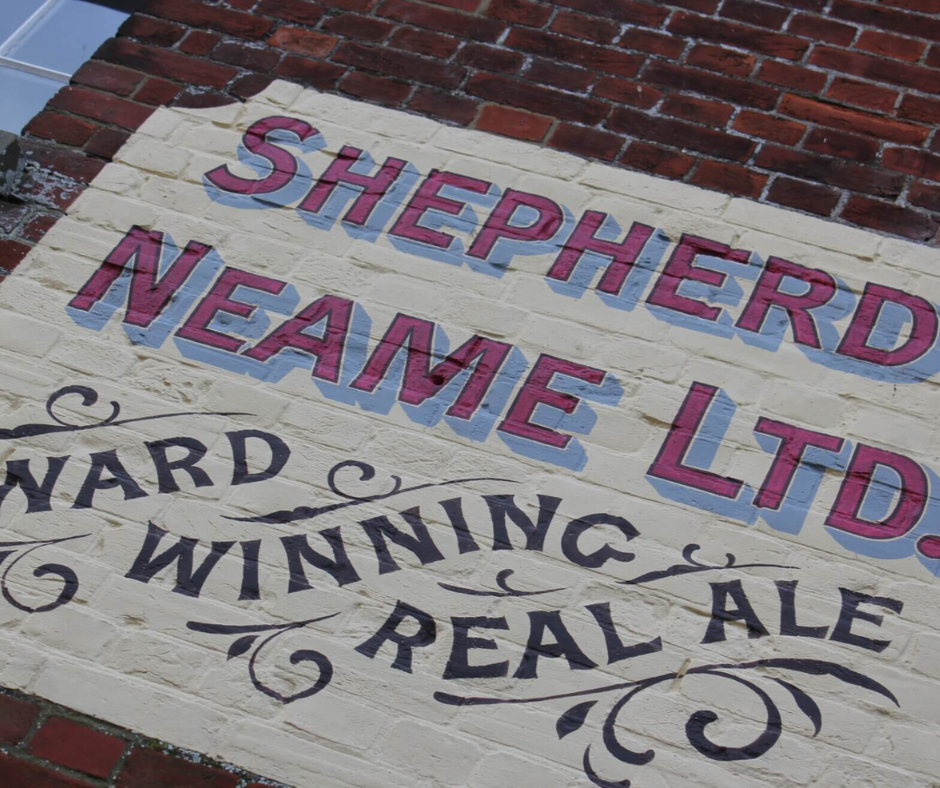 SHEPHERD
NEAME LTD.
WARD
WINNING
REAL ALE